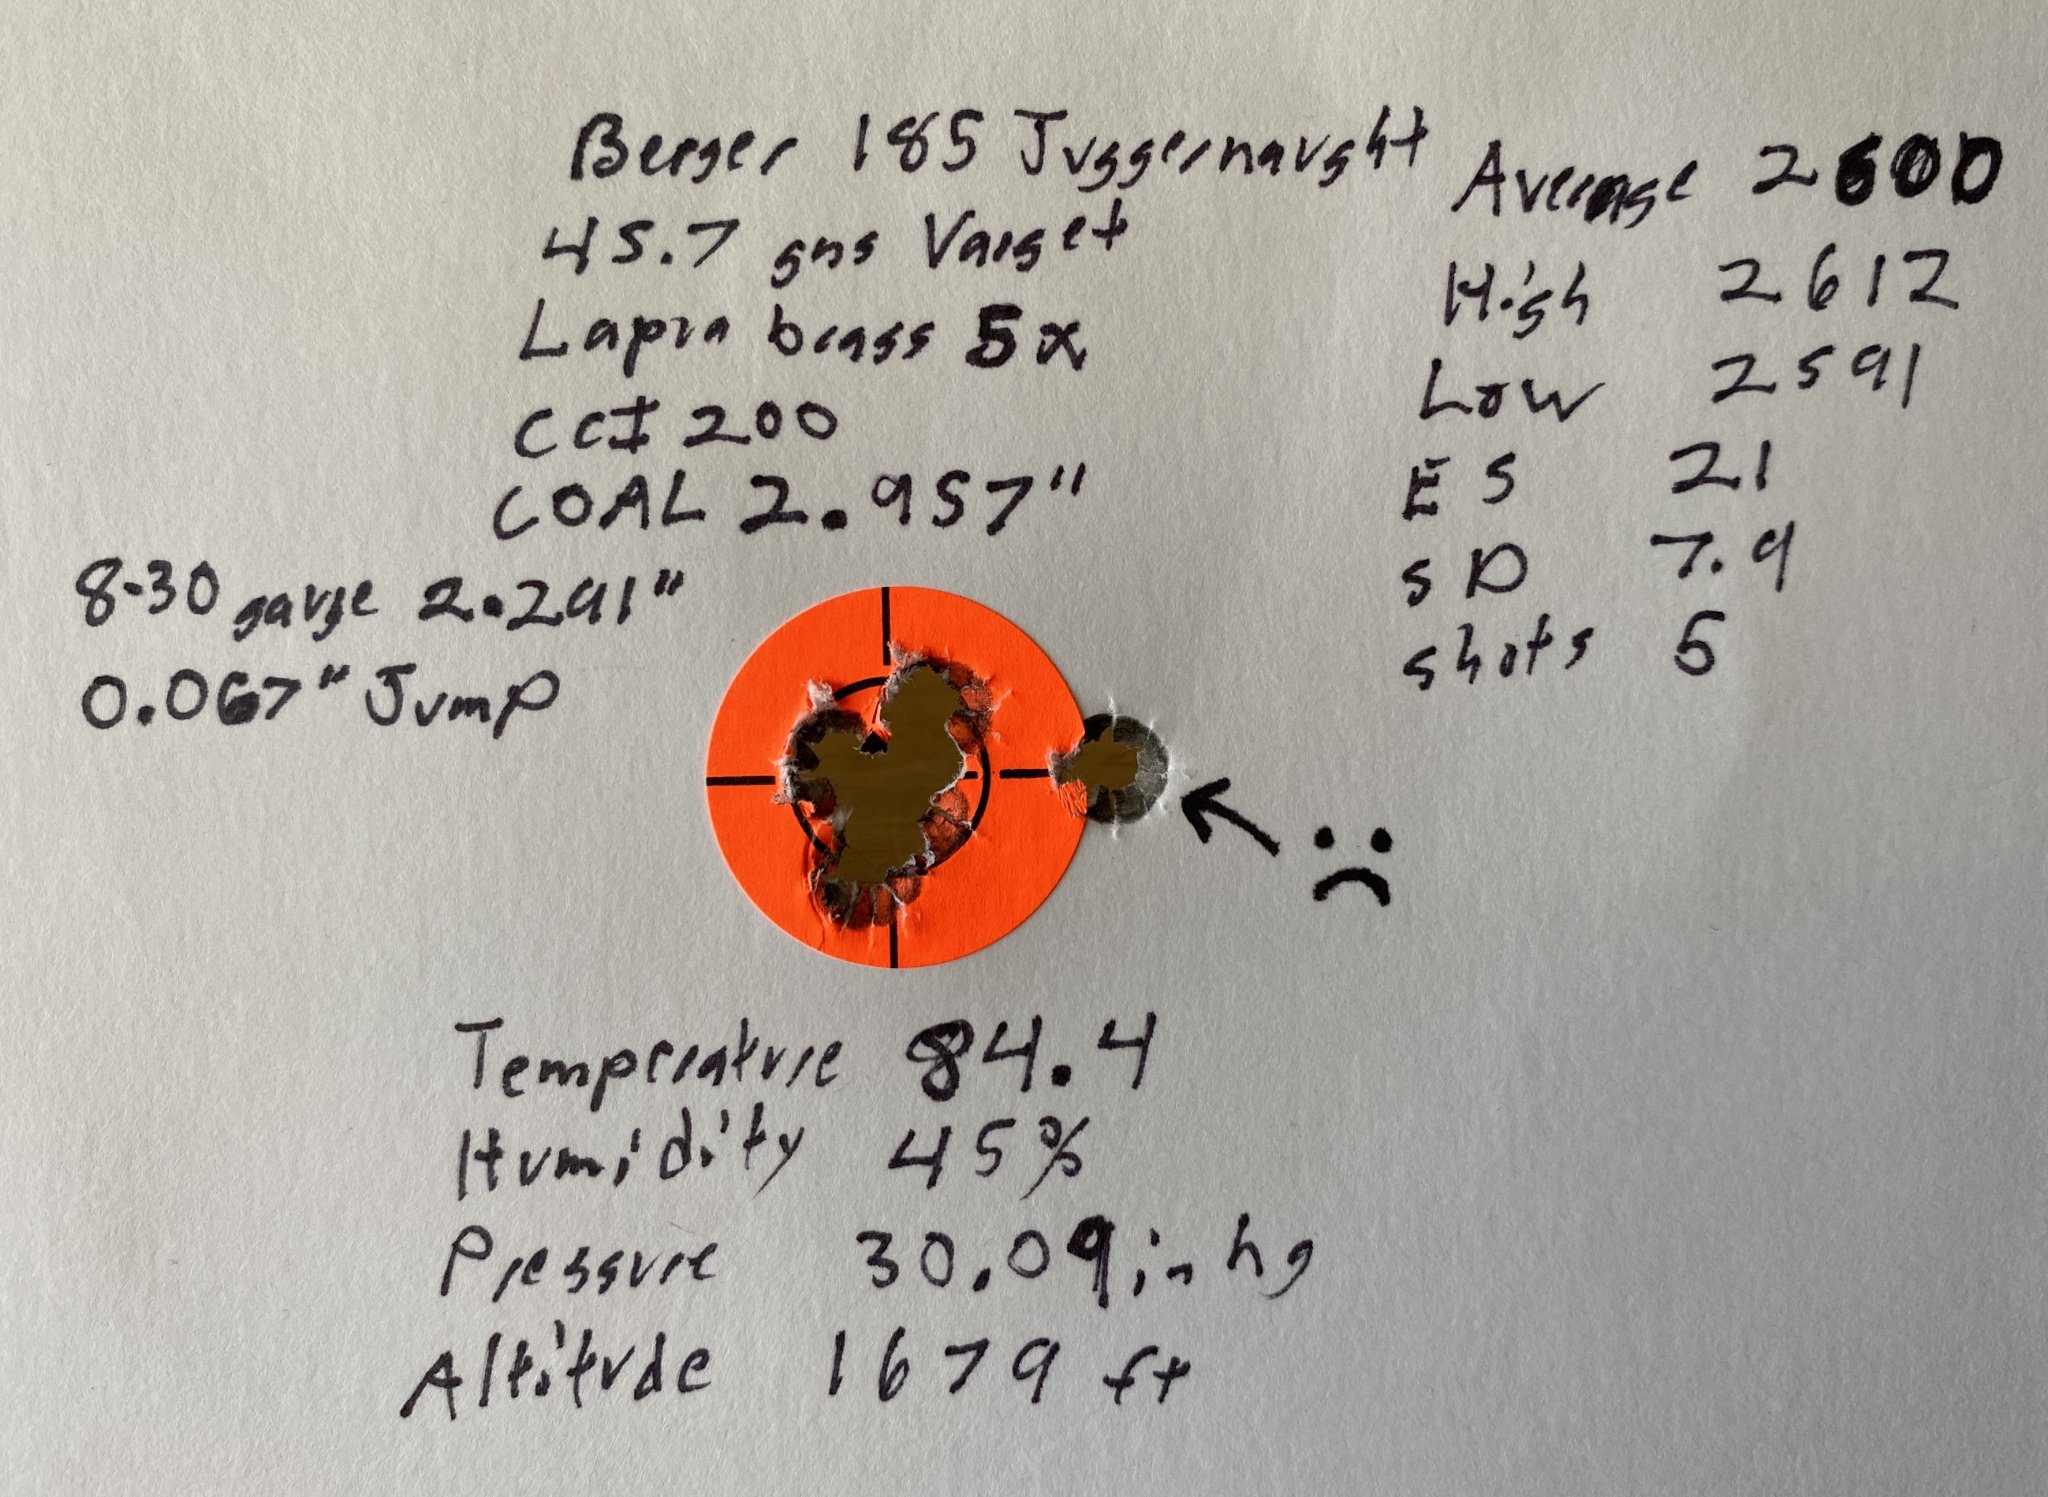 Berger 185 Juggernaught
45.7 gns Varget
Lapua brass 5x
CCI 200
COAL 2.957"
8-30 gauge 2.291"
0.067" Jump
Average 2600
High 2612
Low 2591
ES 21
SD 7.9
shots 5
Temperature 84.4
Humidity 45%
Pressure 30.09 in hg
Altitude 1679 ft